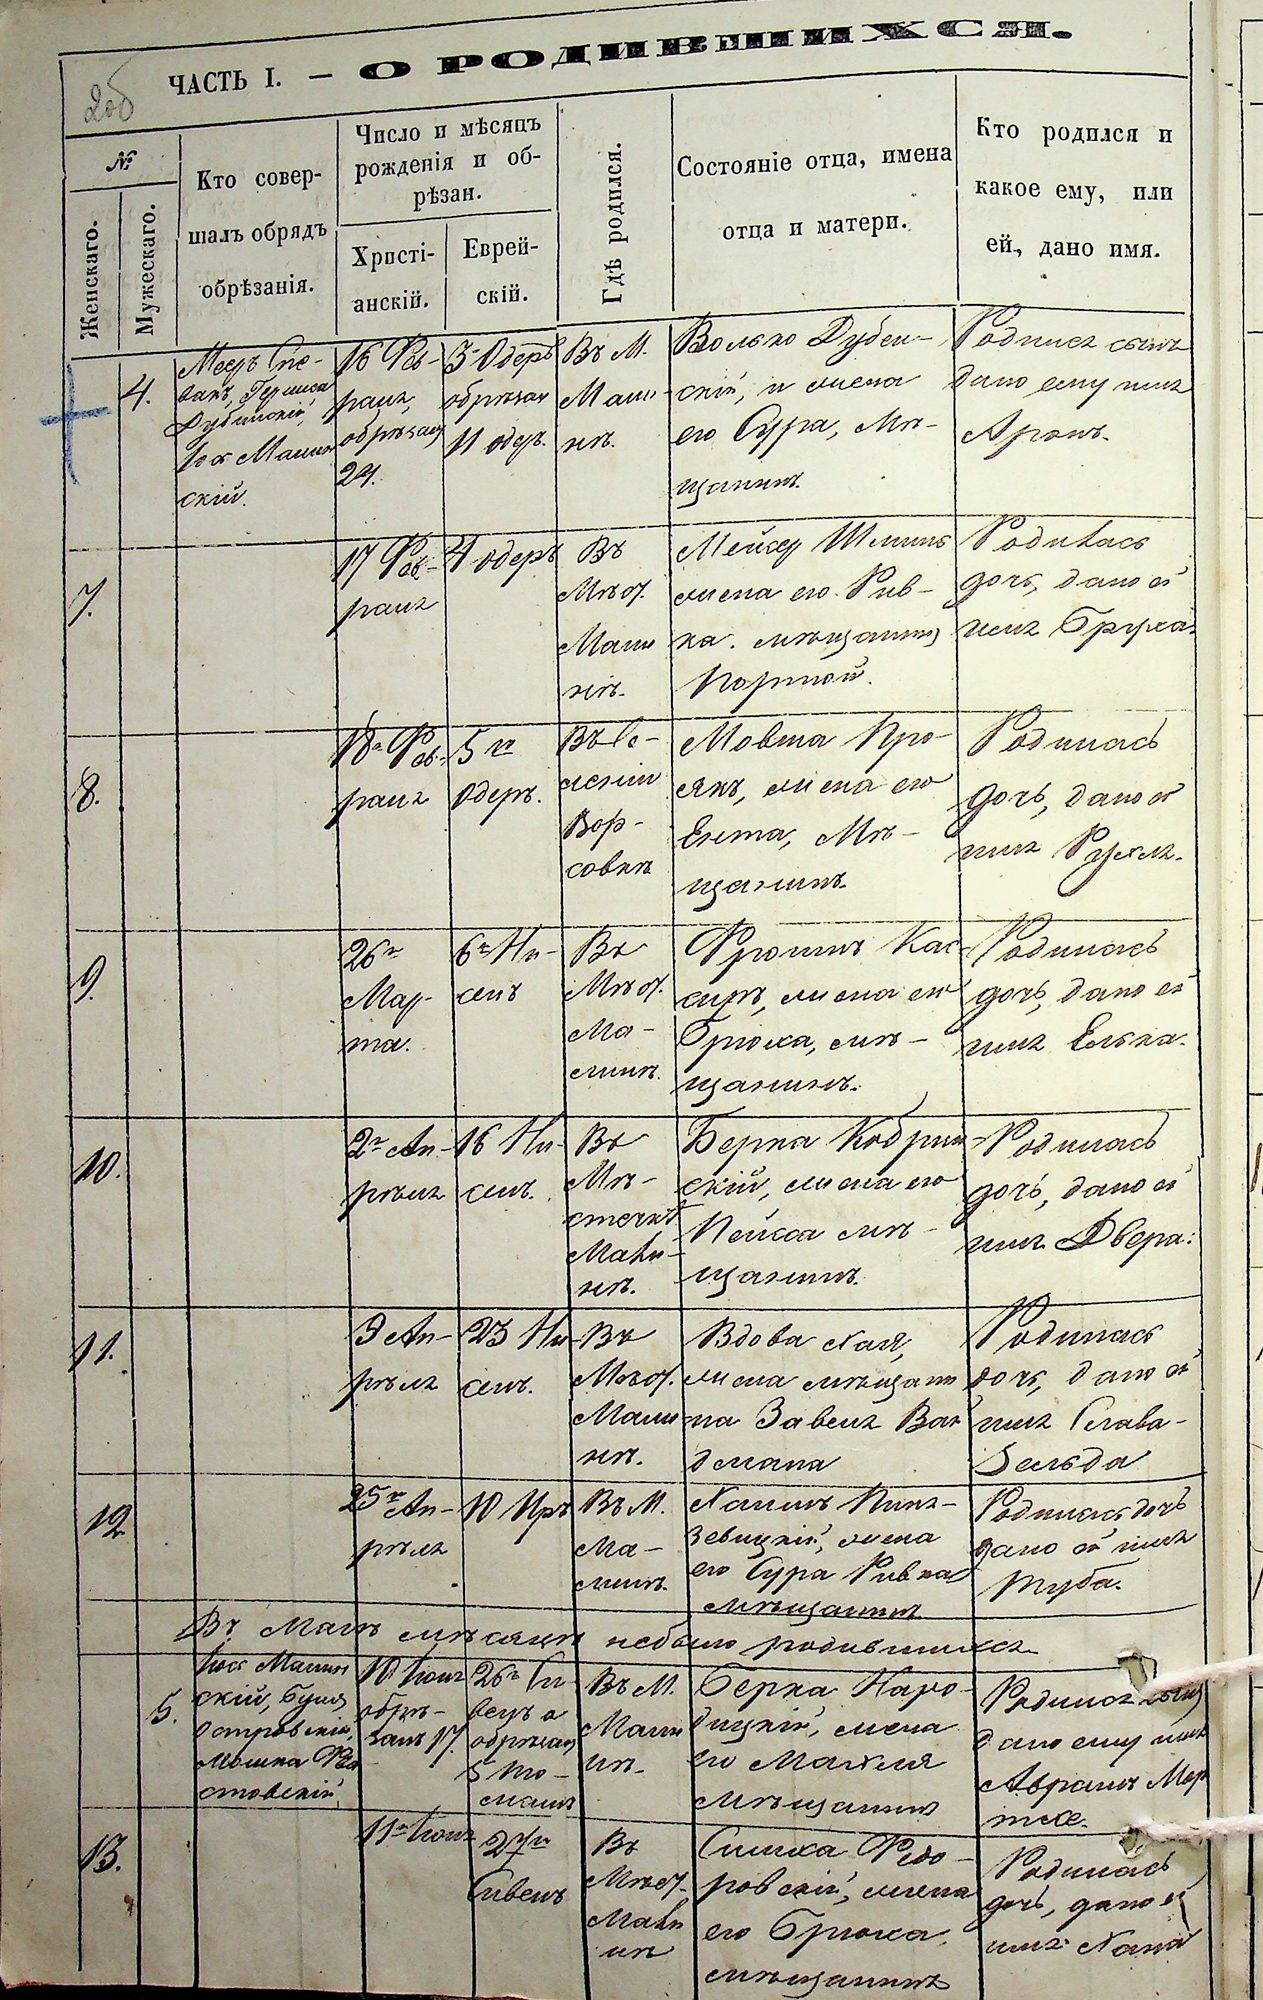 ЧАСТЬ I. — О РОДИВШИХСЯ.
2об
№
Женскаго.
Мужескаго.
Кто совер-
шалъ обрядъ
обрѣзанія.
Число и мѣсяцъ
рожденія и об-
рѣзан.
Христі-
анскій.
Еврей-
скій.
Гдѣ родился.
Состояніе отца, имена
отца и матери.
Кто родился и
какое ему, или
ей, дано имя.
4.
Мееръ Спе-
вакъ, Гершка
Дубинскій,
Іось Малин
скій.
16 Фев-
раля,
обрѣзан
24.
3 Одеръ
обрѣзан
11 одер.
Въ М.
Мали-
нѣ.
Волько Дубен-
скій, и жена
его Сура, Мѣ-
щанинъ.
Родился сынъ
дано ему имя
Аронъ.
7.
17 Фев-
раля
4 одеръ
Въ
Мѣст.
Мали
нѣ.
жена его Рив-
ка. мѣщанинъ
Портной.
Родилась
дочь, дано ей
имя Бруха.
8.
18 Фев-
раля
5 го
Одеръ.
Въ Се-
леніи
Вор-
совкѣ
Мовша Про-
жена его
Ента, Мѣ-
щанинъ.
Родилась
дочь, дано ей
имя Рухля.
9.
26го
Мар-
та.
6го Ни-
санъ
Въ
Мѣст.
Ма-
линѣ.
Фроимъ Кас-
сиръ, жена его
Брюха, мѣ-
щанинъ.
Родилась
дочь, дано ей
имя Елька.
10.
2го Ап-
рѣля
16 Ни-
санъ.
Въ
Мѣ-
стечкѣ
Мали-
нѣ.
Берка Кобрин-
скій, жена его
Пейса мѣ-
щанинъ.
Родилась
дочь, дано ей
имя Двера.
11.
9 Ап-
рѣля
23 Ни-
санъ.
Въ
Мѣст.
Мали
нѣ.
Вдова Хая,
жена мѣщани
на Завеля Вай
дмана
Родилась
дочь, дано ей
имя Слава-
Зельда
12
25го Ап-
рѣля
10 Иръ
Въ М.
Ма-
линѣ.
жена
его Сура Ривка
мѣщанинъ
Родилась дочь
дано ей имя
Туба.
Въ Маѣ мѣсяцѣ небыло родившихся
5.
Іось Малин
скій,
Островскій,
Мошка
10 Іюня
обрѣ-
занъ 17.
26го Си-
венъ а
обрѣзан
5 То-
мазъ
Въ М.
Мали
нѣ.
Берка Наро-
дицкій, жена
его Махля
мѣщанинъ
Родился сынъ
дано ему имя
Аврамъ Мор
тхе.
13.
11го Іюня
27го
Сивенъ
Въ
Мѣст.
Мали
нѣ
Симха Федо-
ровскій, жена
его Брюха
мѣщанинъ
Родилась
дочь, дано ей
имя Хана